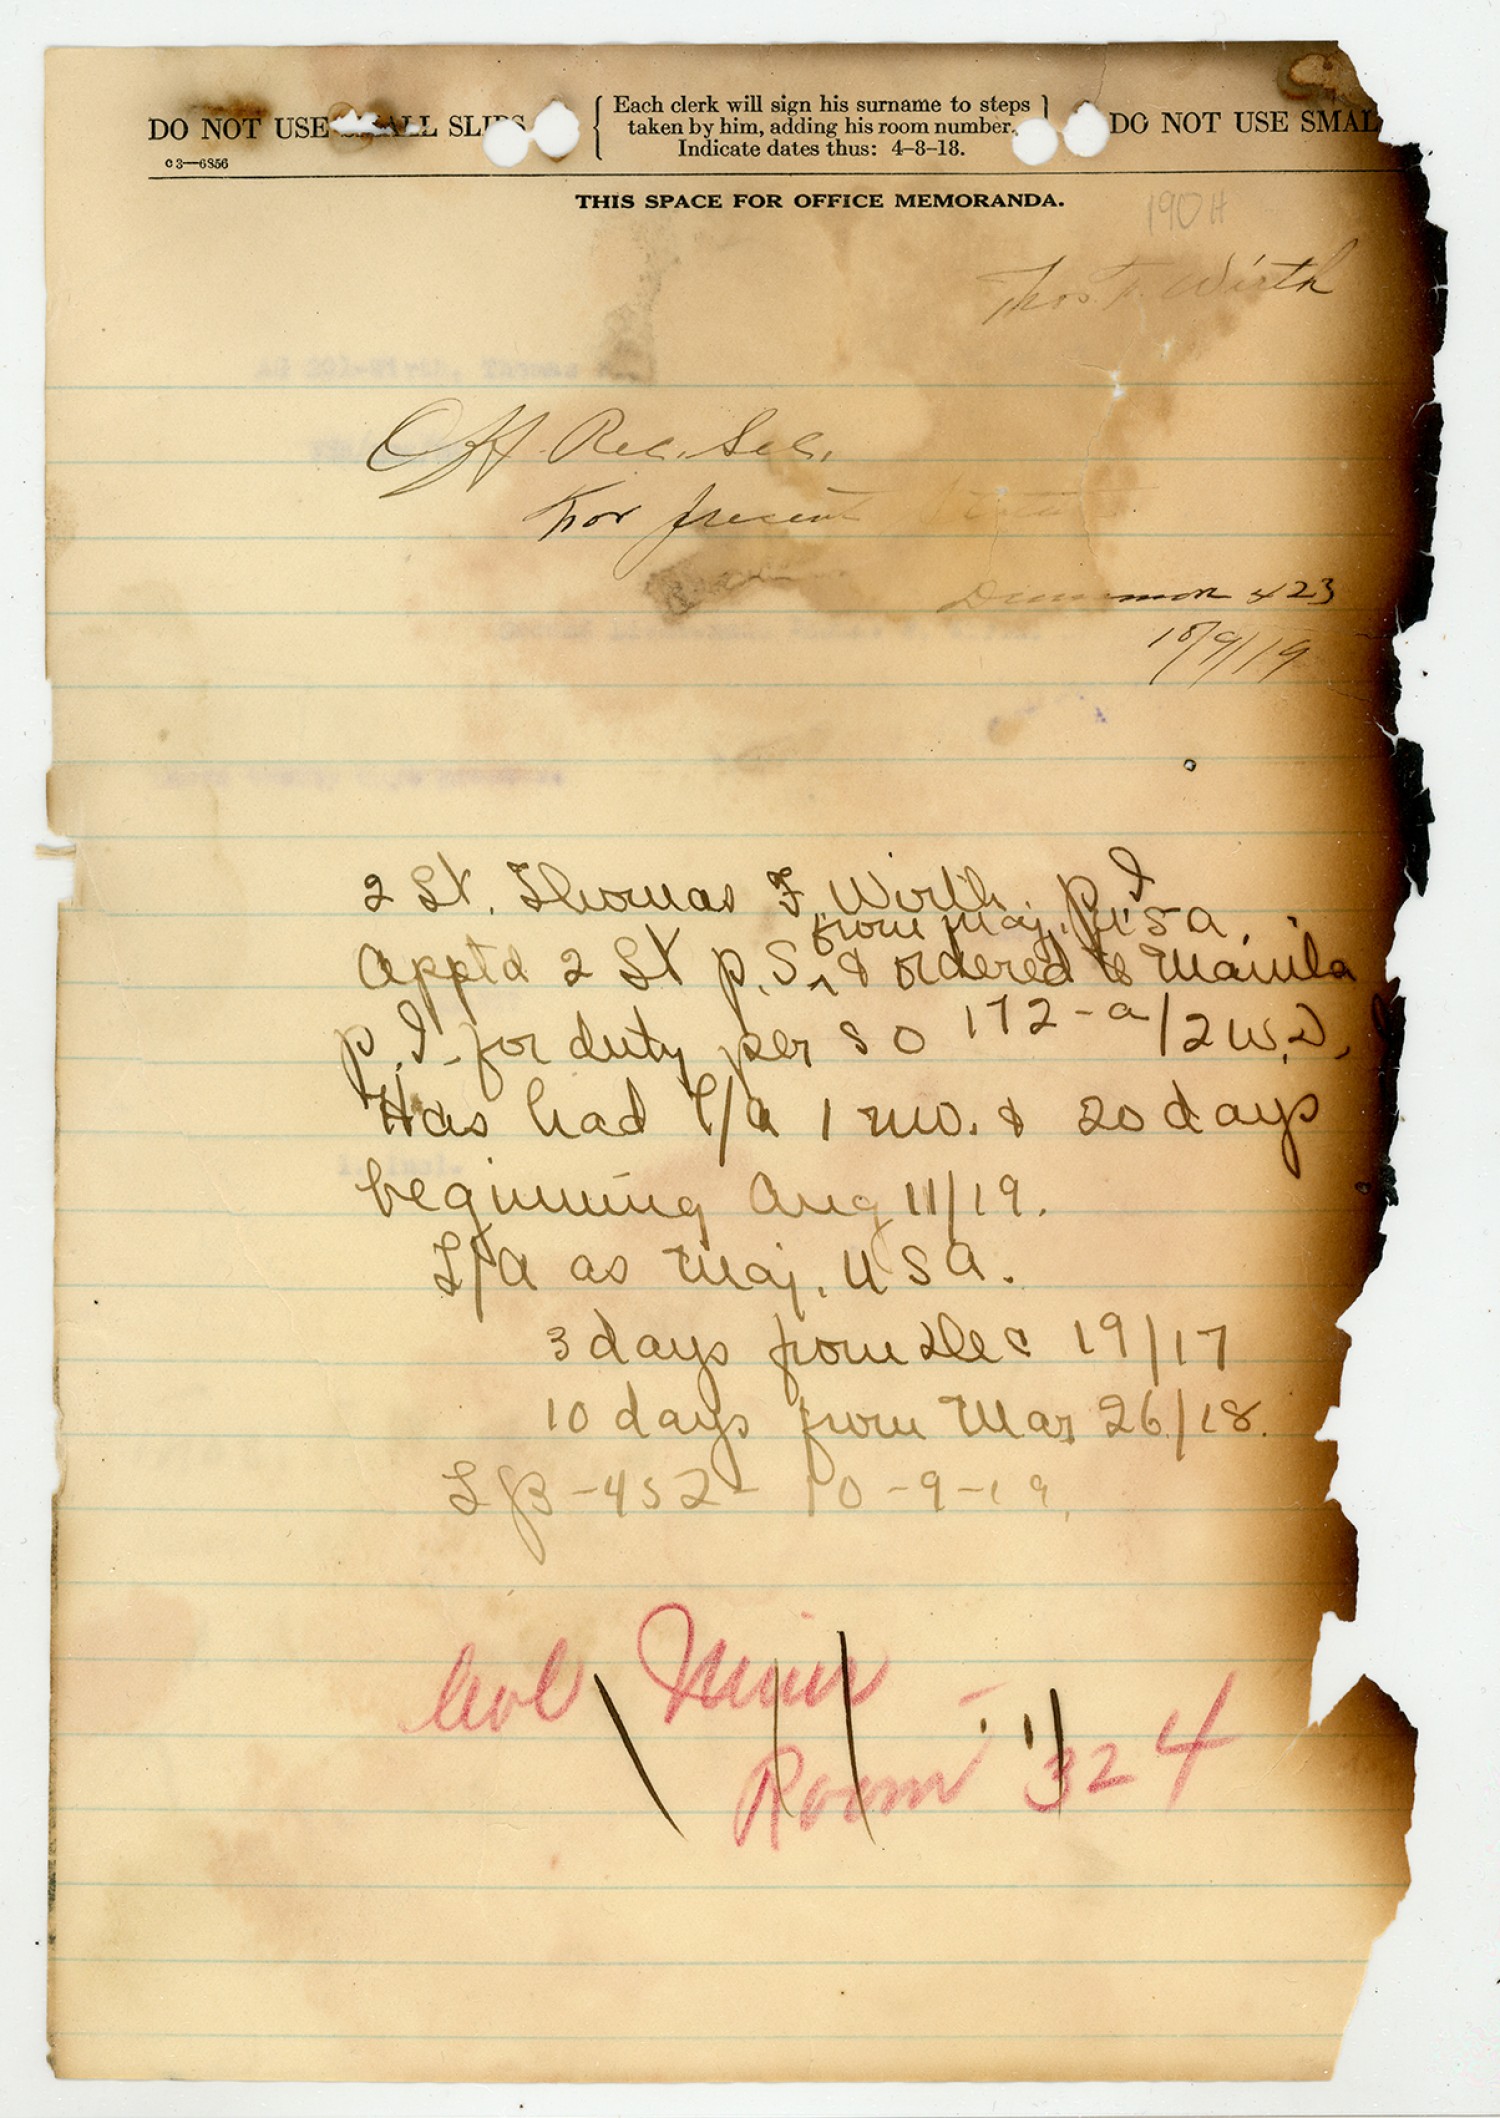 DO NOT USE SMALL SLIPS
Each clerk will sign his surname to steps
taken by him, adding his room number.
Indicate dates thus: 4–8–18.
DO NOT USE SMAL
c 3—6856
THIS SPACE FOR OFFICE MEMORANDA.
190 H
Thos F. Wirth
Off. Rec. Sec.
For present
423
10/9/19
2 Lt. Thomas F. Wirth. P.I.
from Maj. USA
Apptd 2 Lt P.S. ^ & ordered to Manila
P.I. for duty per SO 172-a/2 W.D.
Has had L/A 1 mo. & 20 days
beginning Aug 11/19.
L/A as Maj. USA.
3 days from Dec 19/17
10 days from Mar 26/18.
-452- 10-9-19.
Col
Room 324